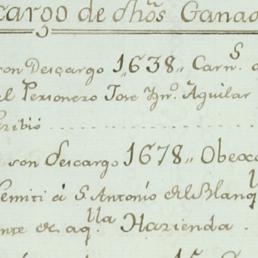 cargo de dhõs Ganad
son Descargo 1638,, Carn.s d
el Personero Jose Ygn.o Aguilar
cribió
son descargo 1678,, Obexa
Remiti á S. Antonio del Blanq
ente de aq.lla Hazienda.